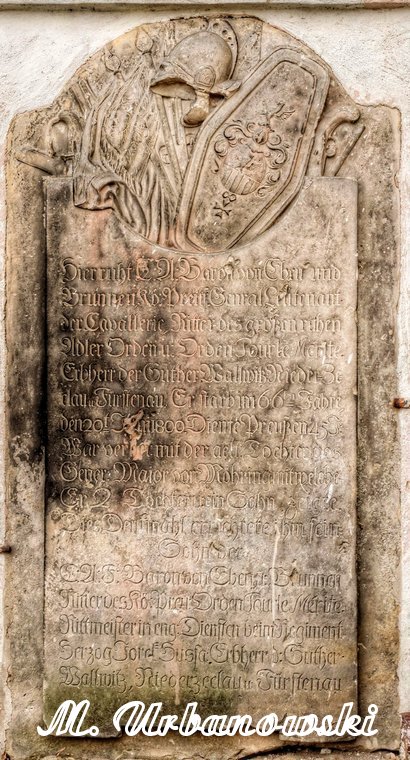 Hier ruht C. A. Baron von Eben und
Brunnen Kö. Preuß. General Lieutenant
der Cavallerie, Ritter des großen rothen
Adler Orden u. Orden Pour le Merite
Erbherr der Güther Wallwitz Nieder Ze
dlau u. Fürstenau. Er starb im 66. Jahre
den 20t 1800 Diente Preußen 45 J.
War ver mit der
Major von
Ein Sohn
Dies Denkmahl errichtete ihm sein
Sohn der
C. A. F. Baron von Eben u. Brunnen
Ritter des Kö. Preu. Orden Pour le Merite
Rittmeister in eng. Diensten beim Regiment
Herzog Erbherr d. Güther
Wallwitz, Niederzedlau u. Fürstenau
M. Urbanowski